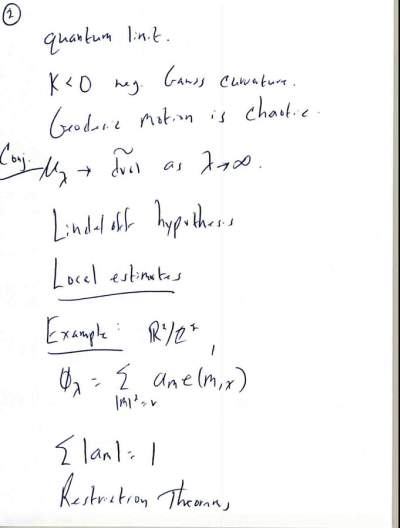 ②
quantum limit.
K<0 neg. Gauss curvature.
Geodesic motion is chaotic.
Conj. μ_λ → d̃vol as λ→∞.
Lindeloff hypothesis
Local estimates
Example: ℝ²/ℤ²,
ϕ_λ = ∑_{|m|²=λ} a_m e(m,x)
∑|a_m| = 1
Restriction Theorems